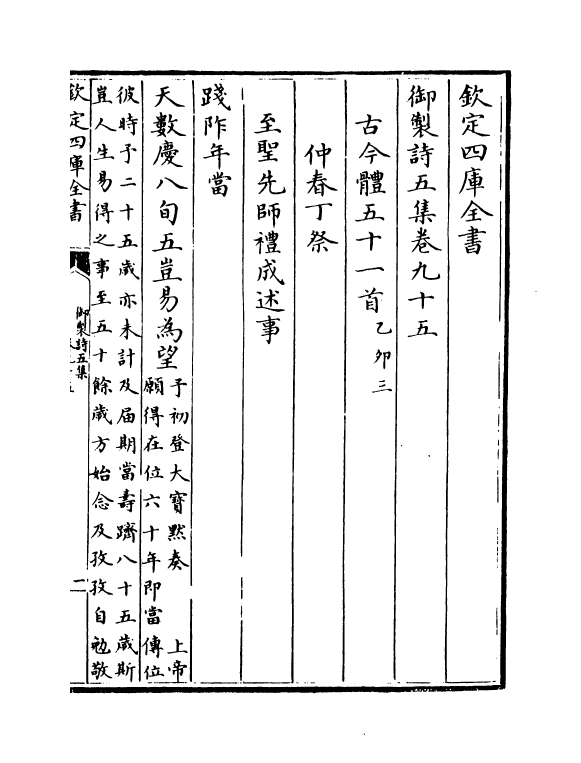 欽定四庫全書
御製詩五集卷九十五
古今體五十一首乙卯三
仲春丁祭
至聖先師禮成述事
踐阼年當
天數慶八旬五豈易為望予初登大寶默奏上帝
願得在位六十年即當傳位
彼時予二十五歲亦未計及屆期當壽躋八十五歲斯
豈人生易得之事至五十餘歲方始念及孜孜自勉敬
欽定四庫全書
御製詩五集
二